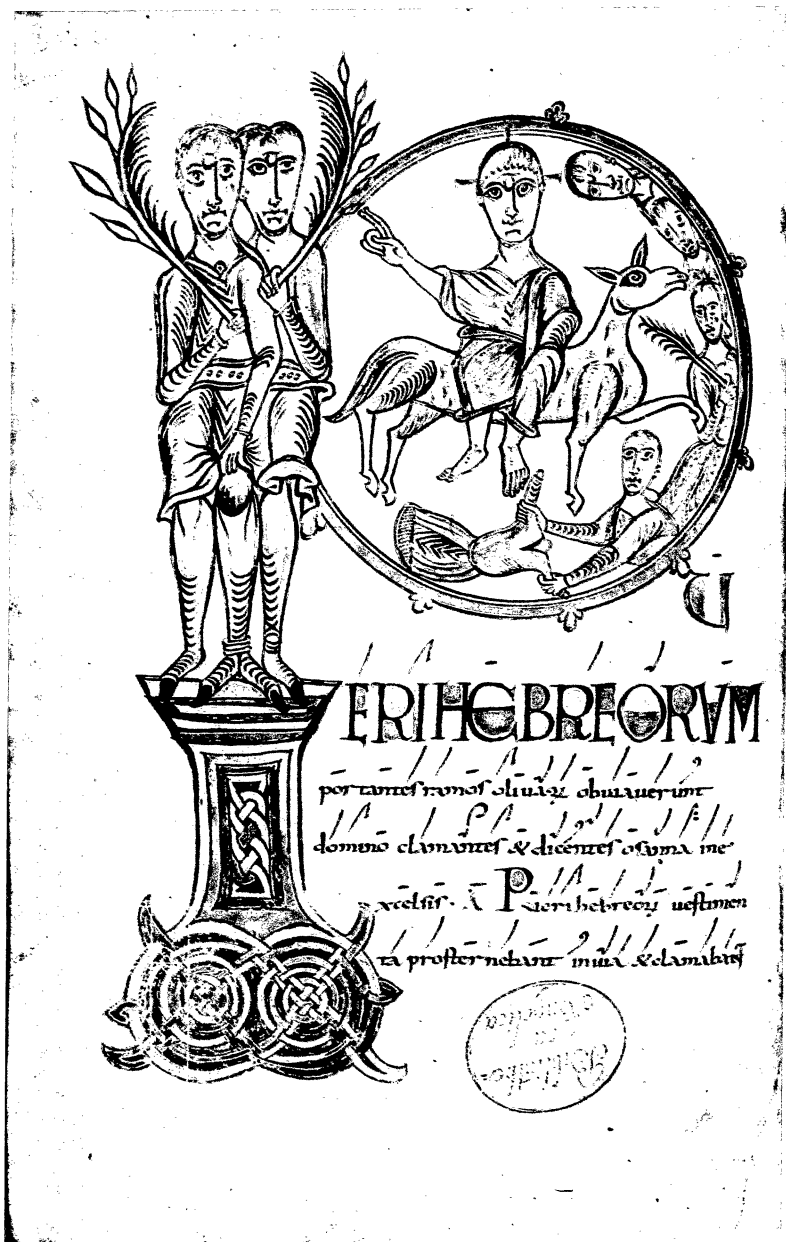 PU
ERI HEBREORVM
portantes ramos oliuaꝝ obuiauerunt
domino clamantes & dicentes osanna ine
xcelsis. A Pueri hebreoꝝ uestimen
ta prosternebant inuia &clamabant
Bibliothe
ca
Angelica